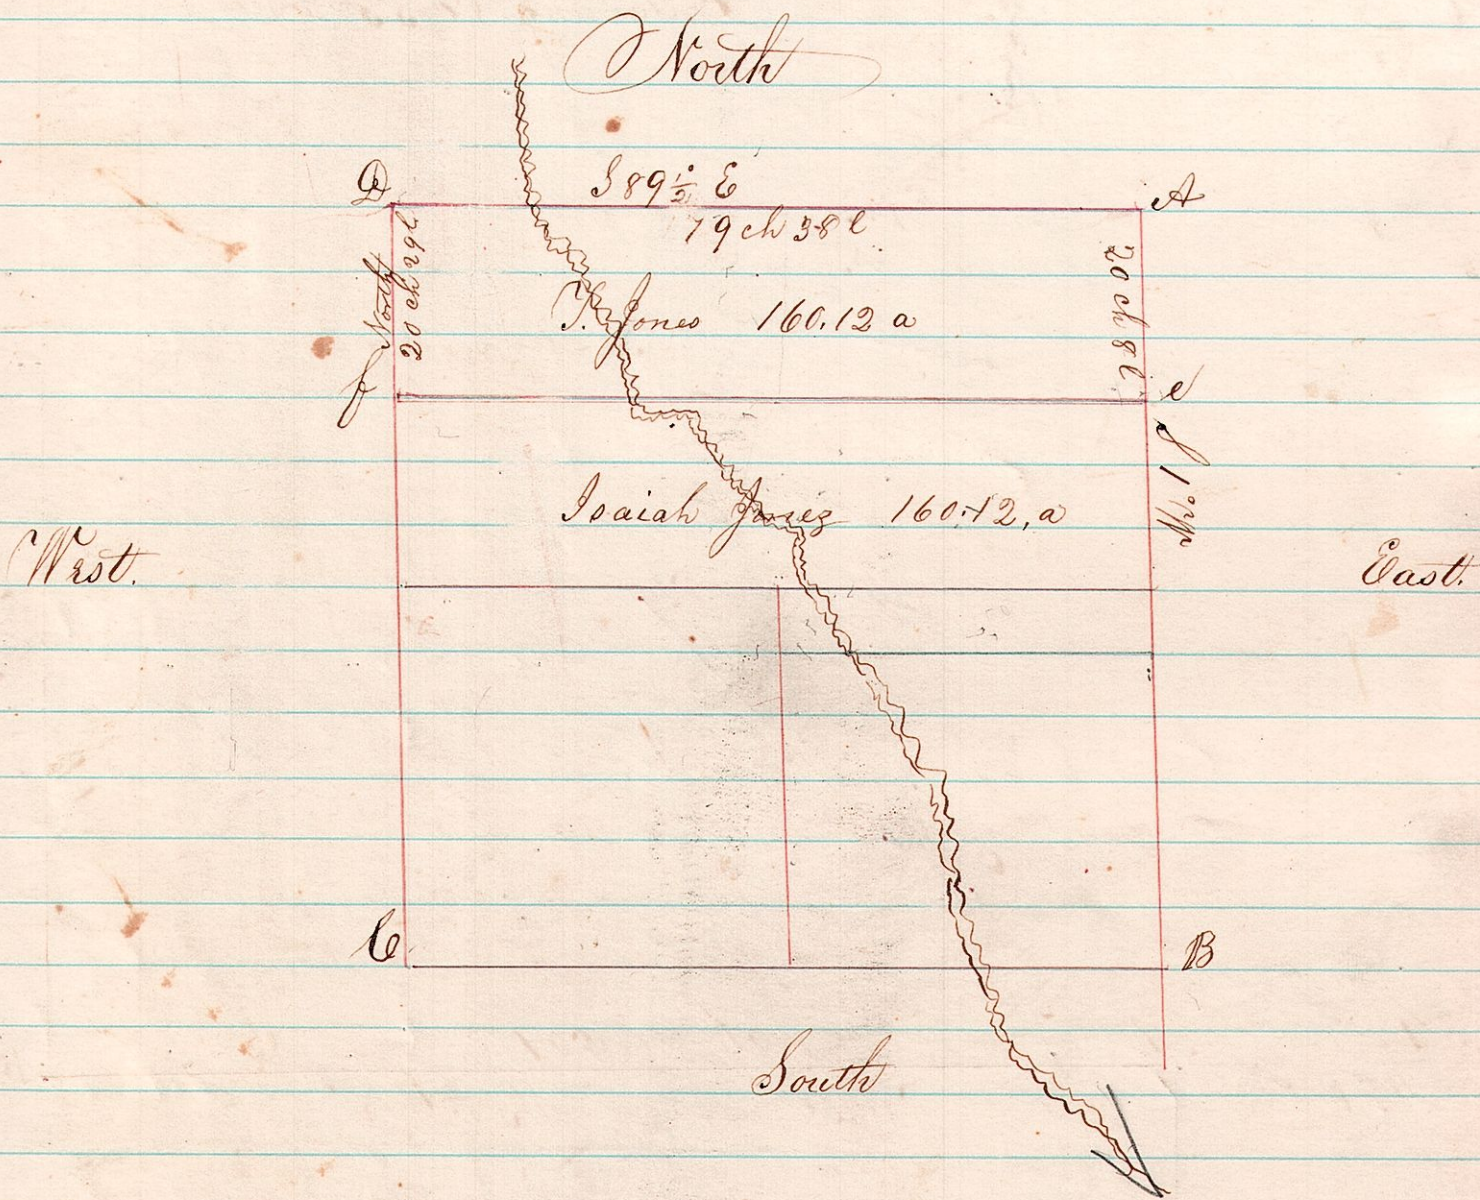 North
D
S 89½° E
A
79 ch 38 l
North
20 ch 29 l
20 ch 8 l
T. Jones 160.12 a
f
e
S 1° W
Isaiah Jones 160.12, a
West.
East.
C
B
South